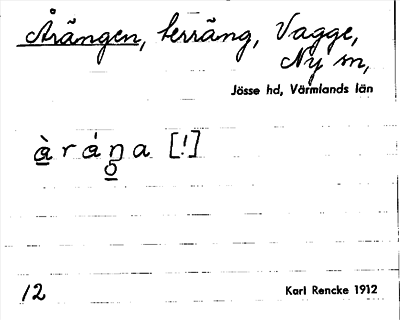 Årängen, terräng, Vagge,
Ny sn,
Jösse hd, Värmlands län
àráŋa [!]
o
12
Karl Rencke 1912